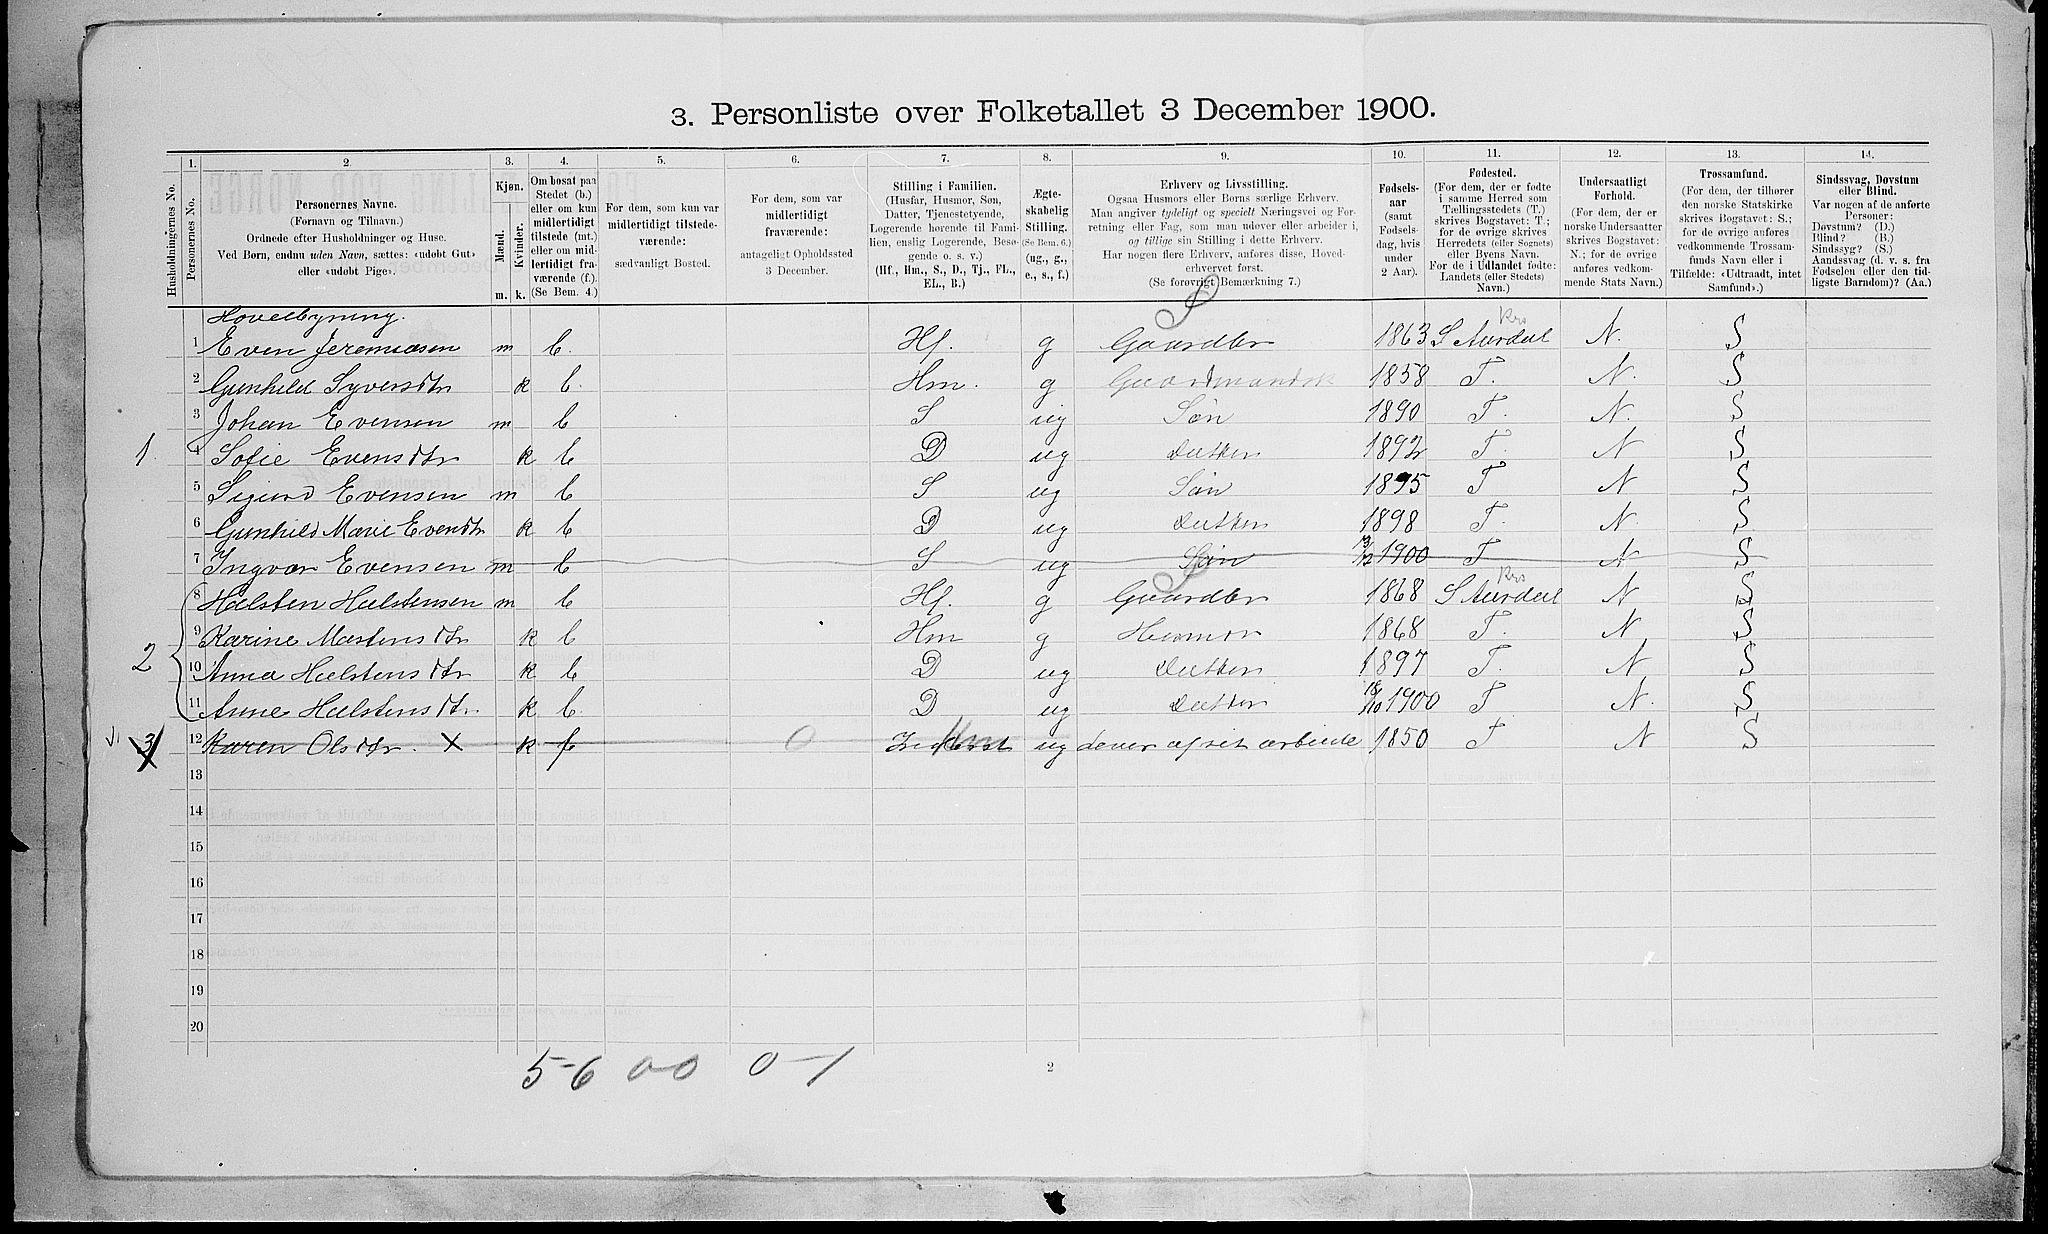 3. Personliste over Folketallet 3 December 1900.
1. 2. 3. 4. 5. 6. 7. 8. 9. 10. 11. 12. 13. 14.
Husholdningernes No.
Personernes No.
Personernes Navne.
(Fornavn og Tilnavn.)
Ordnede efter Husholdninger og Huse.
Ved Børn, endnu uden Navn, sættes: «udøbt Gut»
eller «udøbt Pige».
Kjøn.
Mænd.
Kvinder.
m. k.
Om bosat paa
Stedet (b.)
eller om kun
midlertidigt
tilstede (mt.)
eller om mid-
lertidigt fra-
værende (f.).
(Se Bem. 4.)
For dem, som kun var
midlertidigt tilstede-
værende:
sædvanligt Bosted.
For dem, som var
midlertidigt
fraværende:
antageligt Opholdssted
3 December.
Stilling i Familien.
(Husfar, Husmor, Søn,
Datter, Tjenestetyende,
Logerende hørende til Fami-
lien, enslig Logerende, Besø-
gende o. s. v.)
(Hf., Hm., S., D., Tj., FL.,
EL., B.)
Ægte-
skabelig
Stilling.
(Se Bem. 6.)
(ug., g.,
e., s., f.)
Erhverv og Livsstilling.
Ogsaa Husmors eller Børns særlige Erhverv.
Man angiver tydeligt og specielt Næringsvei og For-
retning eller Fag, som man udøver eller arbeider i,
og tillige sin Stilling i dette Erhverv.
Har nogen flere Erhverv, anføres disse, Hoved-
erhvervet først.
(Se forøvrigt Bemærkning 7.)
Fødsels-
aar
(samt
Fødsels-
dag, hvis
under
2 Aar).
Fødested.
(For dem, der er fødte
i samme Herred som
Tællingsstedets (T.)
skrives Bogstavet: T.;
for de øvrige skrives
Herredets (eller Sognets)
eller Byens Navn.
For de i Udlandet fødte:
Landets (eller Stedets)
Navn.)
Undersaatligt
Forhold.
(For dem, der er
norske Undersaatter
skrives Bogstavet:
N.; for de øvrige
anføres vedkom-
mende Stats Navn.)
Trossamfund.
(For dem, der tilhører
den norske Statskirke
skrives Bogstavet: S.;
for de øvrige anføres
vedkommende Trossam-
funds Navn eller i
Tilfælde: «Udtraadt, intet
Samfund».)
Sindssvag, Døvstum
eller Blind.
Var nogen af de anførte
Personer:
Døvstum? (D.)
Blind? (B.)
Sindssyg? (S.)
Aandssvag (d. v. s. fra
Fødselen eller den tid-
ligste Barndom)? (Aa.)
Hovedbygning.
1 Even Jeremiasen m b. Hf. g Gaardbr 1863 S Aurdal Krs N. S
2 Gunhild Syversdtr k b. Hm. g Gaardmandsk 1858 T. N. S
3 Johan Evensen m b S ug Søn 1890 T. N. S
1. 4 Sofie Evensdtr k b D ug Datter 1892 T. N S
5 Sigurd Evensen m b S ug Søn 1895 T N S
6 Gunhild Marie Evendtr k b D ug Datter 1898 T. N. S
7 Ingvar Evensen m b S ug Søn 13/12 1900 T N S
8 Halsten Halstensen m b Hf. g Gaardbr 1868 S Aurdal Krs N S
2 9 Karine Mastensdtr k b Hm g Husmor 1868 T. N S
10 Anna Halstensdtr k b D ug Datter 1897 T. N S
11 Anne Halstensdtr k b. D ug Datter 18/10 1900 T N. S
3 12 Karen Olsdtr. X k f 0 ug lever af sit arbeide 1850 T N S
13
14
15
16
17
18
19
20
5-6 0-0 0-1
2